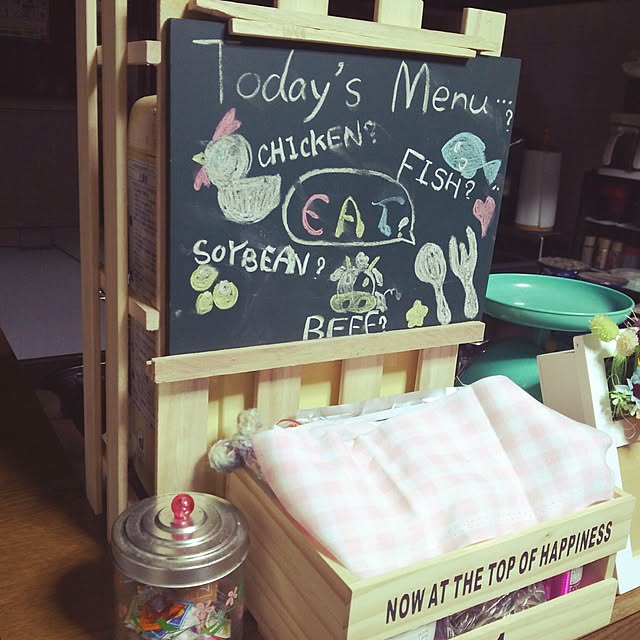 Today's Menu...?
CHICKEN?
FISH?
EAT?
SOYBEAN?
BEEF?
NOW AT THE TOP OF HAPPINESS